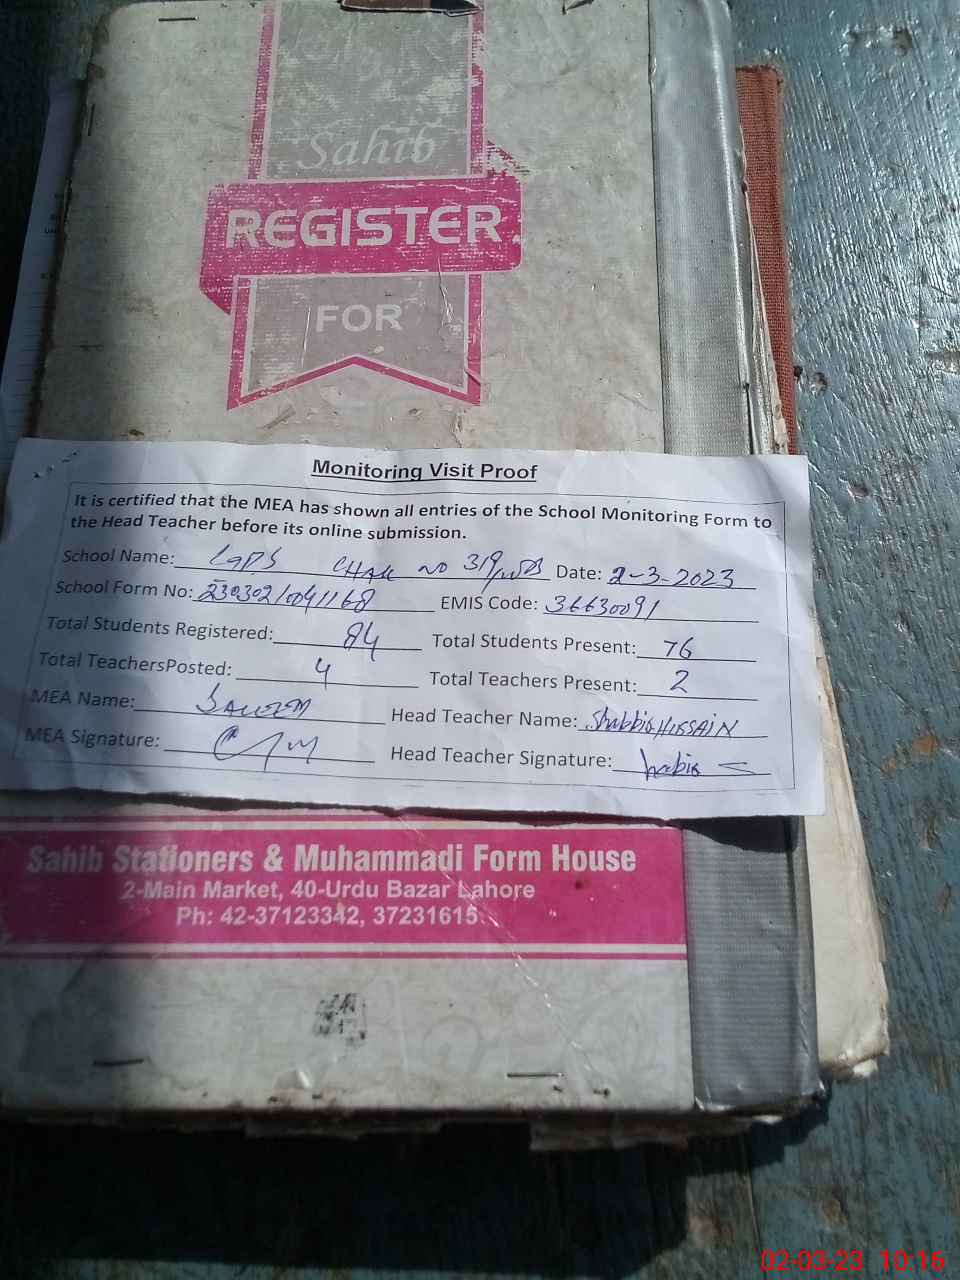 Sahib
REGISTER
FOR
Monitoring Visit Proof
It is certified that the MEA has shown all entries of the School Monitoring Form to
the Head Teacher before its online submission.
School Name: GPS CHAK NO 319/WB Date: 2-3-2023
School Form No: 230302/0041168 EMIS Code: 36630091
Total Students Registered: 84 Total Students Present: 76
Total TeachersPosted: 4 Total Teachers Present: 2
MEA Name: SALEEM Head Teacher Name: Shabbir HUSSAIN
MEA Signature: Head Teacher Signature:
Sahib Stationers & Muhammadi Form House
2-Main Market, 40-Urdu Bazar Lahore
Ph: 42-37123342, 37231615
02-03-23 10:16